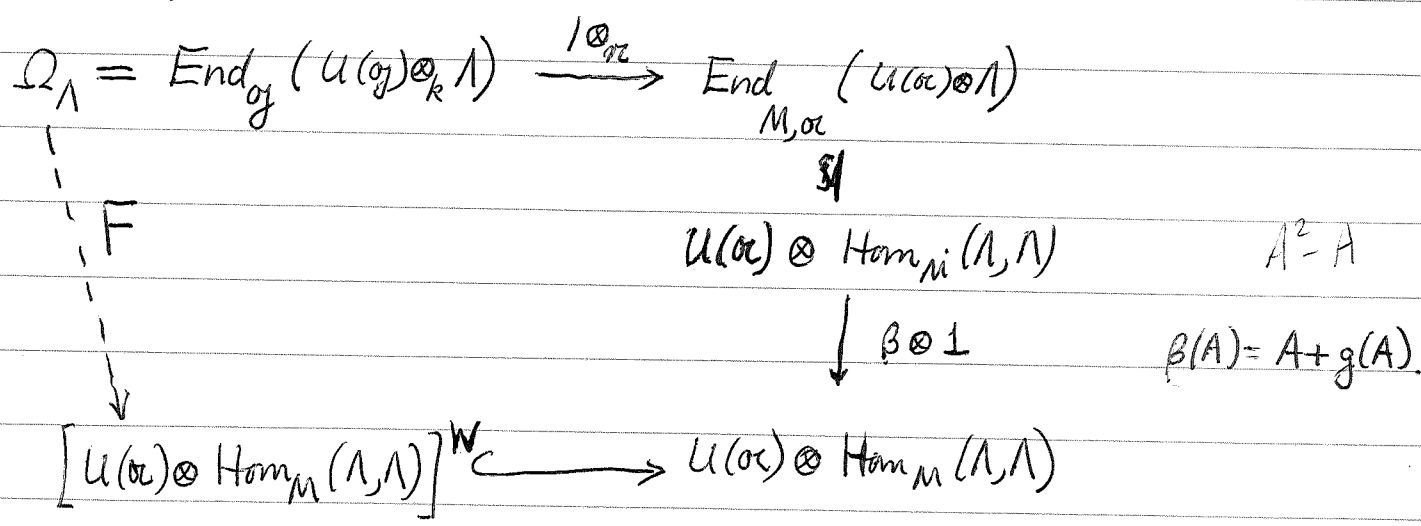 Ω_Λ = End_𝔤 (U(𝔤)⊗_k Λ) —1⊗_𝔫→ End_{M,𝔞} (U(𝔞)⊗Λ)
F
U(𝔞) ⊗ Hom_M (Λ,Λ) A² - A
β⊗1 β(A) = A + g(A).
[U(𝔞)⊗ Hom_M (Λ,Λ)]^W ↪ U(𝔞) ⊗ Hom_M (Λ,Λ)